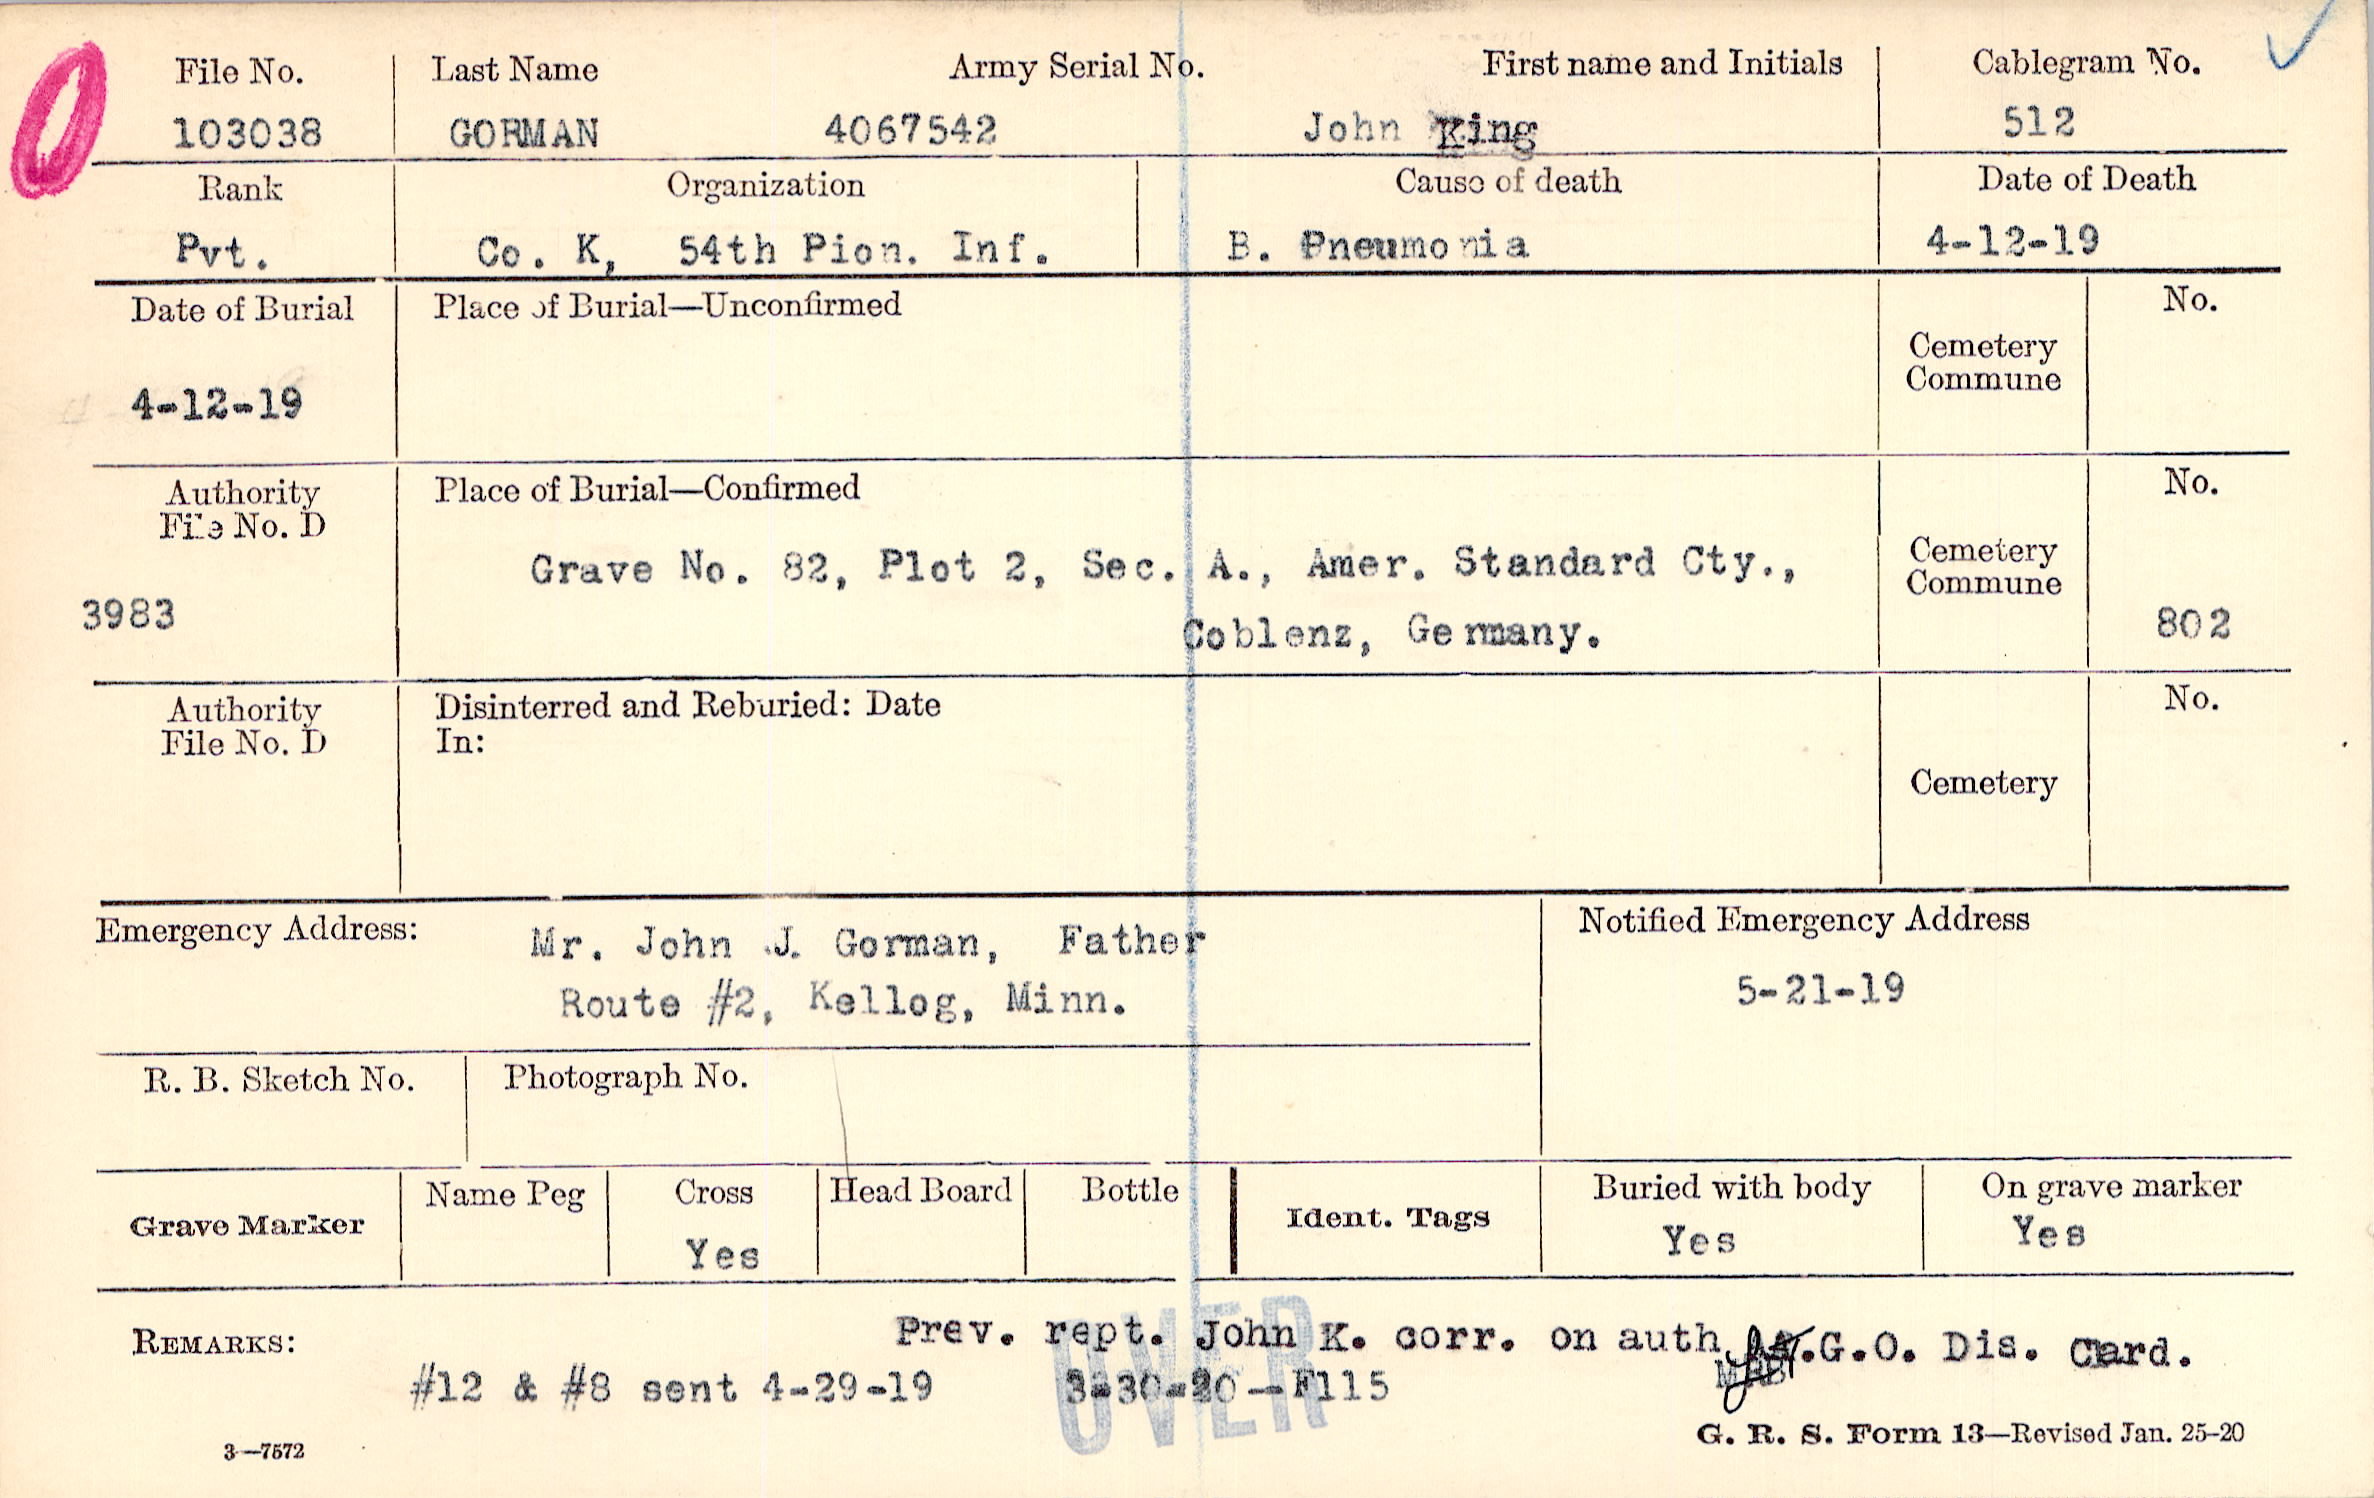 File No. Last Name Army Serial No. First name and Initials Cablegram No.
103038 GORMAN 4067542 John King 512
Rank Organization Cause of death Date of Death
Pvt. Co. K, 54th Pion. Inf. B. Pneumonia 4-12-19
Date of Burial Place of Burial—Unconfirmed No.
Cemetery
Commune
4-12-19
Authority Place of Burial—Confirmed No.
File No. D
Grave No. 82, Plot 2, Sec. A., Amer. Standard Cty., Cemetery
Commune
3983 Coblenz, Germany. 802
Authority Disinterred and Reburied: Date No.
File No. D In:
Cemetery
Emergency Address: Mr. John J. Gorman, Father Notified Emergency Address
Route #2, Kellog, Minn. 5-21-19
R. B. Sketch No. Photograph No.
Grave Marker Name Peg Cross Head Board Bottle Ident. Tags Buried with body On grave marker
Yes Yes Yes
REMARKS: Prev. rept. John K. corr. on auth A.G.O. Dis. Card.
#12 & #8 sent 4-29-19 3-30-20—F115
OVER
3—7572 G. R. S. Form 13—Revised Jan. 25-20